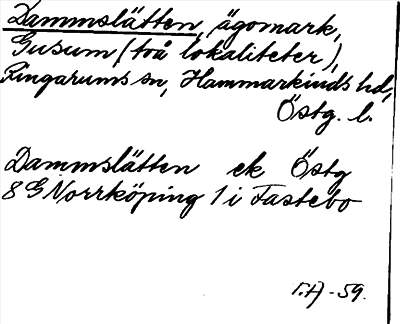 Dammslätten, ägomark,
Gusum (två lokaliteter),
Ringarums sn, Hammarkinds hd,
Östg. l.
Dammslätten ek Östg
8 G Norrköping 1 i Fastebo
-59.